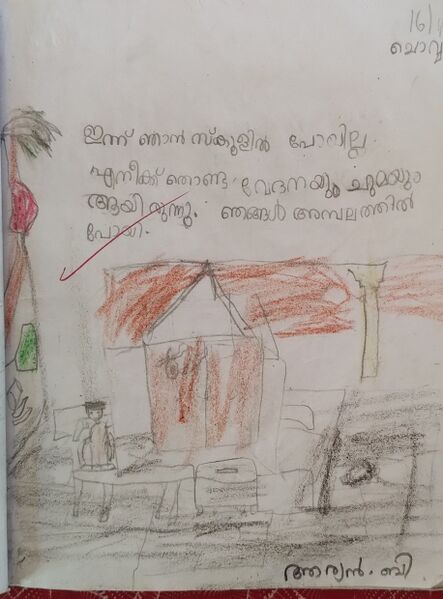 16/1
ചൊവ്വ
ഇന്ന് ഞാൻ സ്കൂളിൽ പോവില്ല.
എനീക്ക് തൊണ്ട വേദനയും ചുമയും
ആയിരുന്നു. ഞങ്ങൾ അമ്പലത്തിൽ
പോയി.
ആര്യൻ. ബി